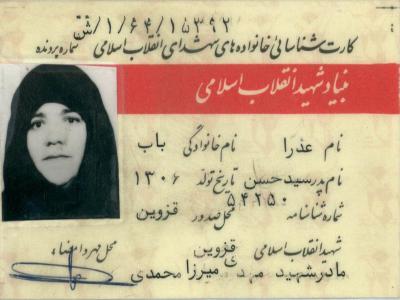 ۱/۶۴/۱۵۳۹۲/ش
کارت شناسائی خانواده های شهدای انقلاب اسلامی شماره پرونده
بنیاد شهید انقلاب اسلامی
نام عذرا نام خانوادگی باب
نام پدر سیدحسن تاریخ تولد ۱۳۰۶
شماره شناسنامه ۵۴۲۵۰ محل صدور قزوین
شهید انقلاب اسلامی قزوین محل مهر و امضاء
مادر شهید میرزا محمدی